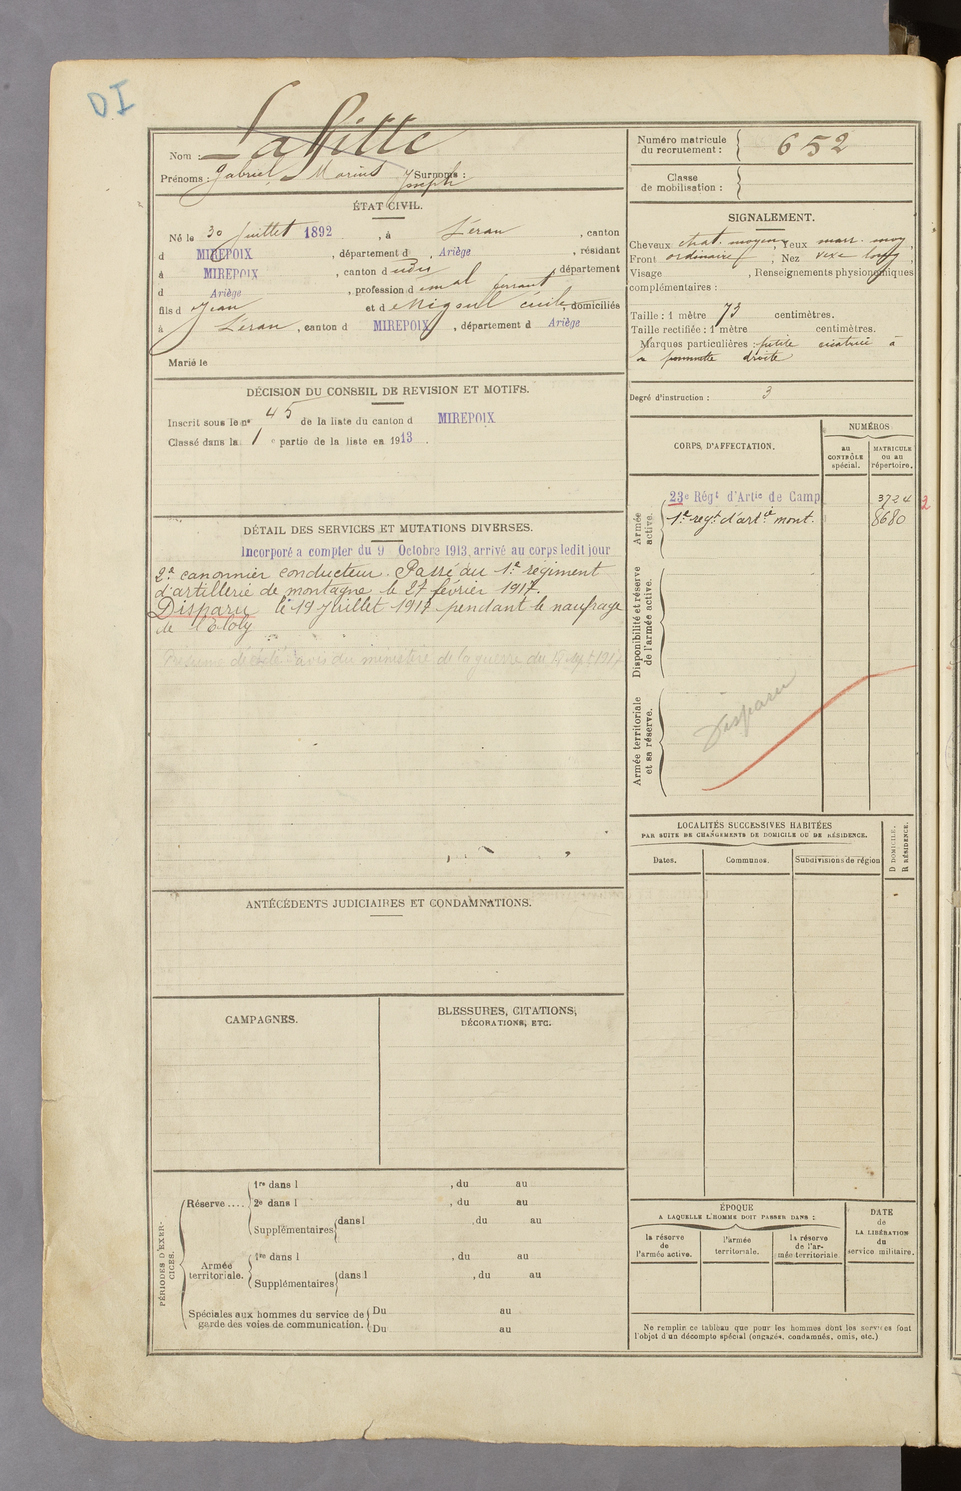 DI
Nom : Lafitte
Prénoms : Gabriel Marius Joseph Surnoms :
ÉTAT CIVIL.
Né le 30 Juillet 1892, à Léran, canton
d MIREPOIX, département d Ariège, résidant
à MIREPOIX, canton d dudit, département
d Ariège, profession d
fils d Jean et d domiciliés
à Léran, canton d MIREPOIX, département d Ariège
Marié le
DÉCISION DU CONSEIL DE REVISION ET MOTIFS.
Inscrit sous le nº 45 de la liste du canton d MIREPOIX
Classé dans la 1 e partie de la liste en 1913.
DÉTAIL DES SERVICES ET MUTATIONS DIVERSES.
Incorporé a compter du 9 Octobre 1913, arrivé au corps ledit jour
2e canonnier conducteur. Passé au 1er regiment
d'artillerie de montagne le 27 février 1917.
Disparu le 19 Juillet 1917 pendant le naufrage
de l'Eloby
Présumé décédé avis du ministère de la guerre du
ANTÉCÉDENTS JUDICIAIRES ET CONDAMNATIONS.
CAMPAGNES.
BLESSURES, CITATIONS,
DÉCORATIONS, ETC.
PÉRIODES D'EXERCICES.
Réserve ....
1re dans l , du au
2e dans l , du au
Supplémentaires dans l , du au
Armée territoriale.
1re dans l , du au
Supplémentaires dans l , du au
Spéciales aux hommes du service de garde des voies de communication.
Du au
Du au
Numéro matricule
du recrutement : 652
Classe
de mobilisation :
SIGNALEMENT.
Cheveux chat. moyen, Yeux marr. moy,
Front ordinaire, Nez vexe long,
Visage , Renseignements physionomiques
complémentaires :
Taille : 1 mètre 73 centimètres.
Taille rectifiée : 1 mètre centimètres.
Marques particulières : petite cicatrice à
la pommette droite
Degré d'instruction : 3
CORPS D'AFFECTATION.
NUMÉROS
au CONTRÔLE spécial.
MATRICULE ou au répertoire.
Armée active.
23e Régt d'Artie de Camp 3724
2
1er regt d'artie mont. 8680
Disponibilité et réserve de l'armée active.
Armée territoriale et sa réserve.
Disparu
LOCALITÉS SUCCESSIVES HABITÉES
PAR SUITE DE CHANGEMENTS DE DOMICILE OU DE RÉSIDENCE.
Dates.
Communes.
Subdivisions de région
D DOMICILE.
R RÉSIDENCE.
ÉPOQUE
A LAQUELLE L'HOMME DOIT PASSER DANS :
la réserve de l'armée active.
l'armée territoriale.
la réserve de l'armée territoriale.
DATE de LA LIBÉRATION du service militaire.
Ne remplir ce tableau que pour les hommes dont les services font
l'objet d'un décompte spécial (engagés, condamnés, omis, etc.)